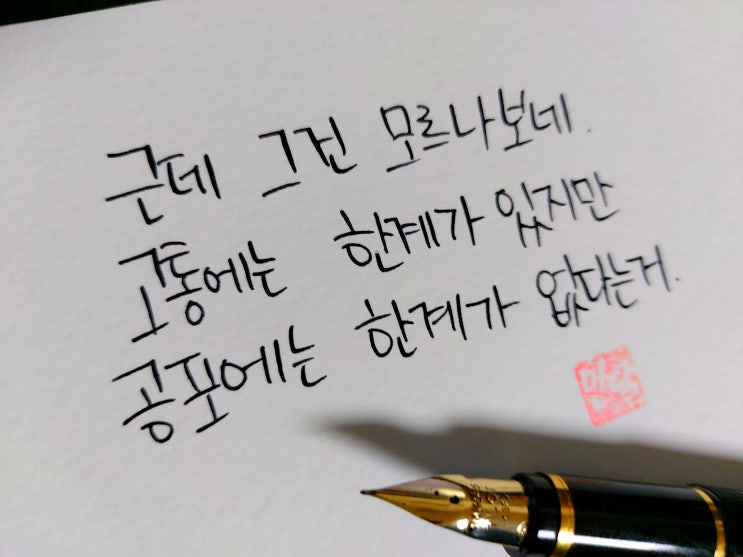 근데 그건 모르나보네.
고통에는 한계가 있지만
공포에는 한계가 없다는거.